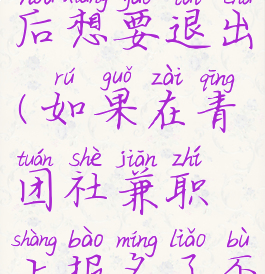 后想要退出
rú guǒ zài qīng
(如果在青
tuán shè jiān zhí
团社兼职
shàng bào míng liǎo bù
上报名了不